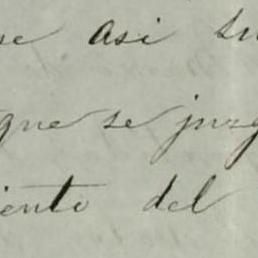 se asi su
que se juzg
iento del